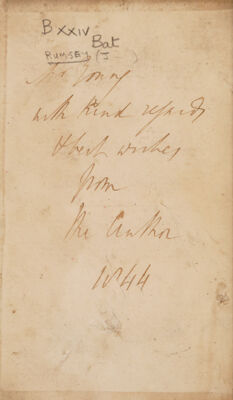 B XXIV
Bat
RUMSEY (J
Young
with kind regards
& best wishes
from
The Author
1844